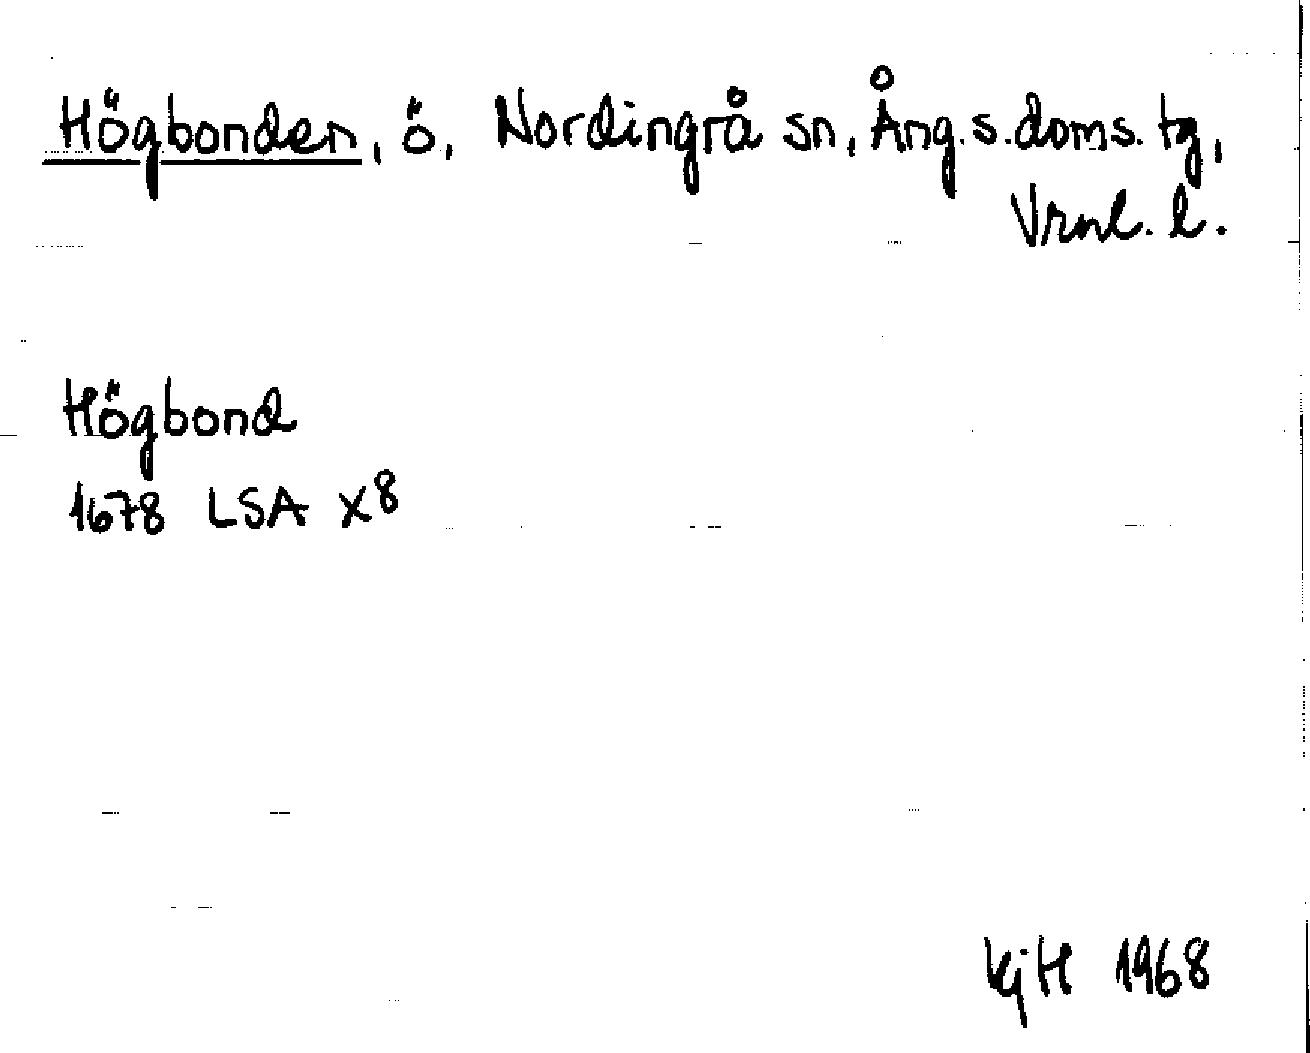 Högbonden, ö, Nordingrå sn, Ång.s.doms.tg,
Vrnl. l.
Högbond
1678 LSA X8
KjH 1968